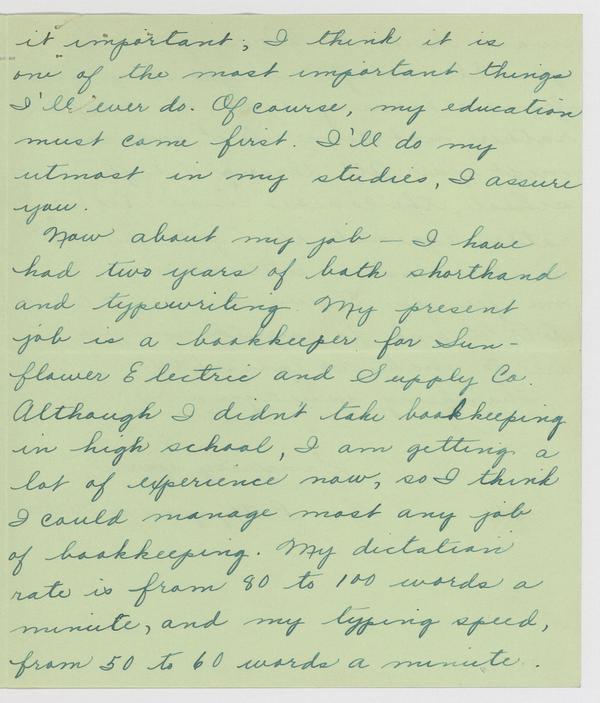 it important; I think it is
one of the most important things
I'll ever do. Of course, my education
must come first. I'll do my
utmost in my studies, I assure
you.
Now about my job — I have
had two years of both shorthand
and typewriting. My present
job is a bookkeeper for Sun-
flower Electric and Supply Co.
Although I didn't take bookkeeping
in high school, I am getting a
lot of experience now, so I think
I could manage most any job
of bookkeeping. My dictation
rate is from 80 to 100 words a
minute, and my typing speed,
from 50 to 60 words a minute.